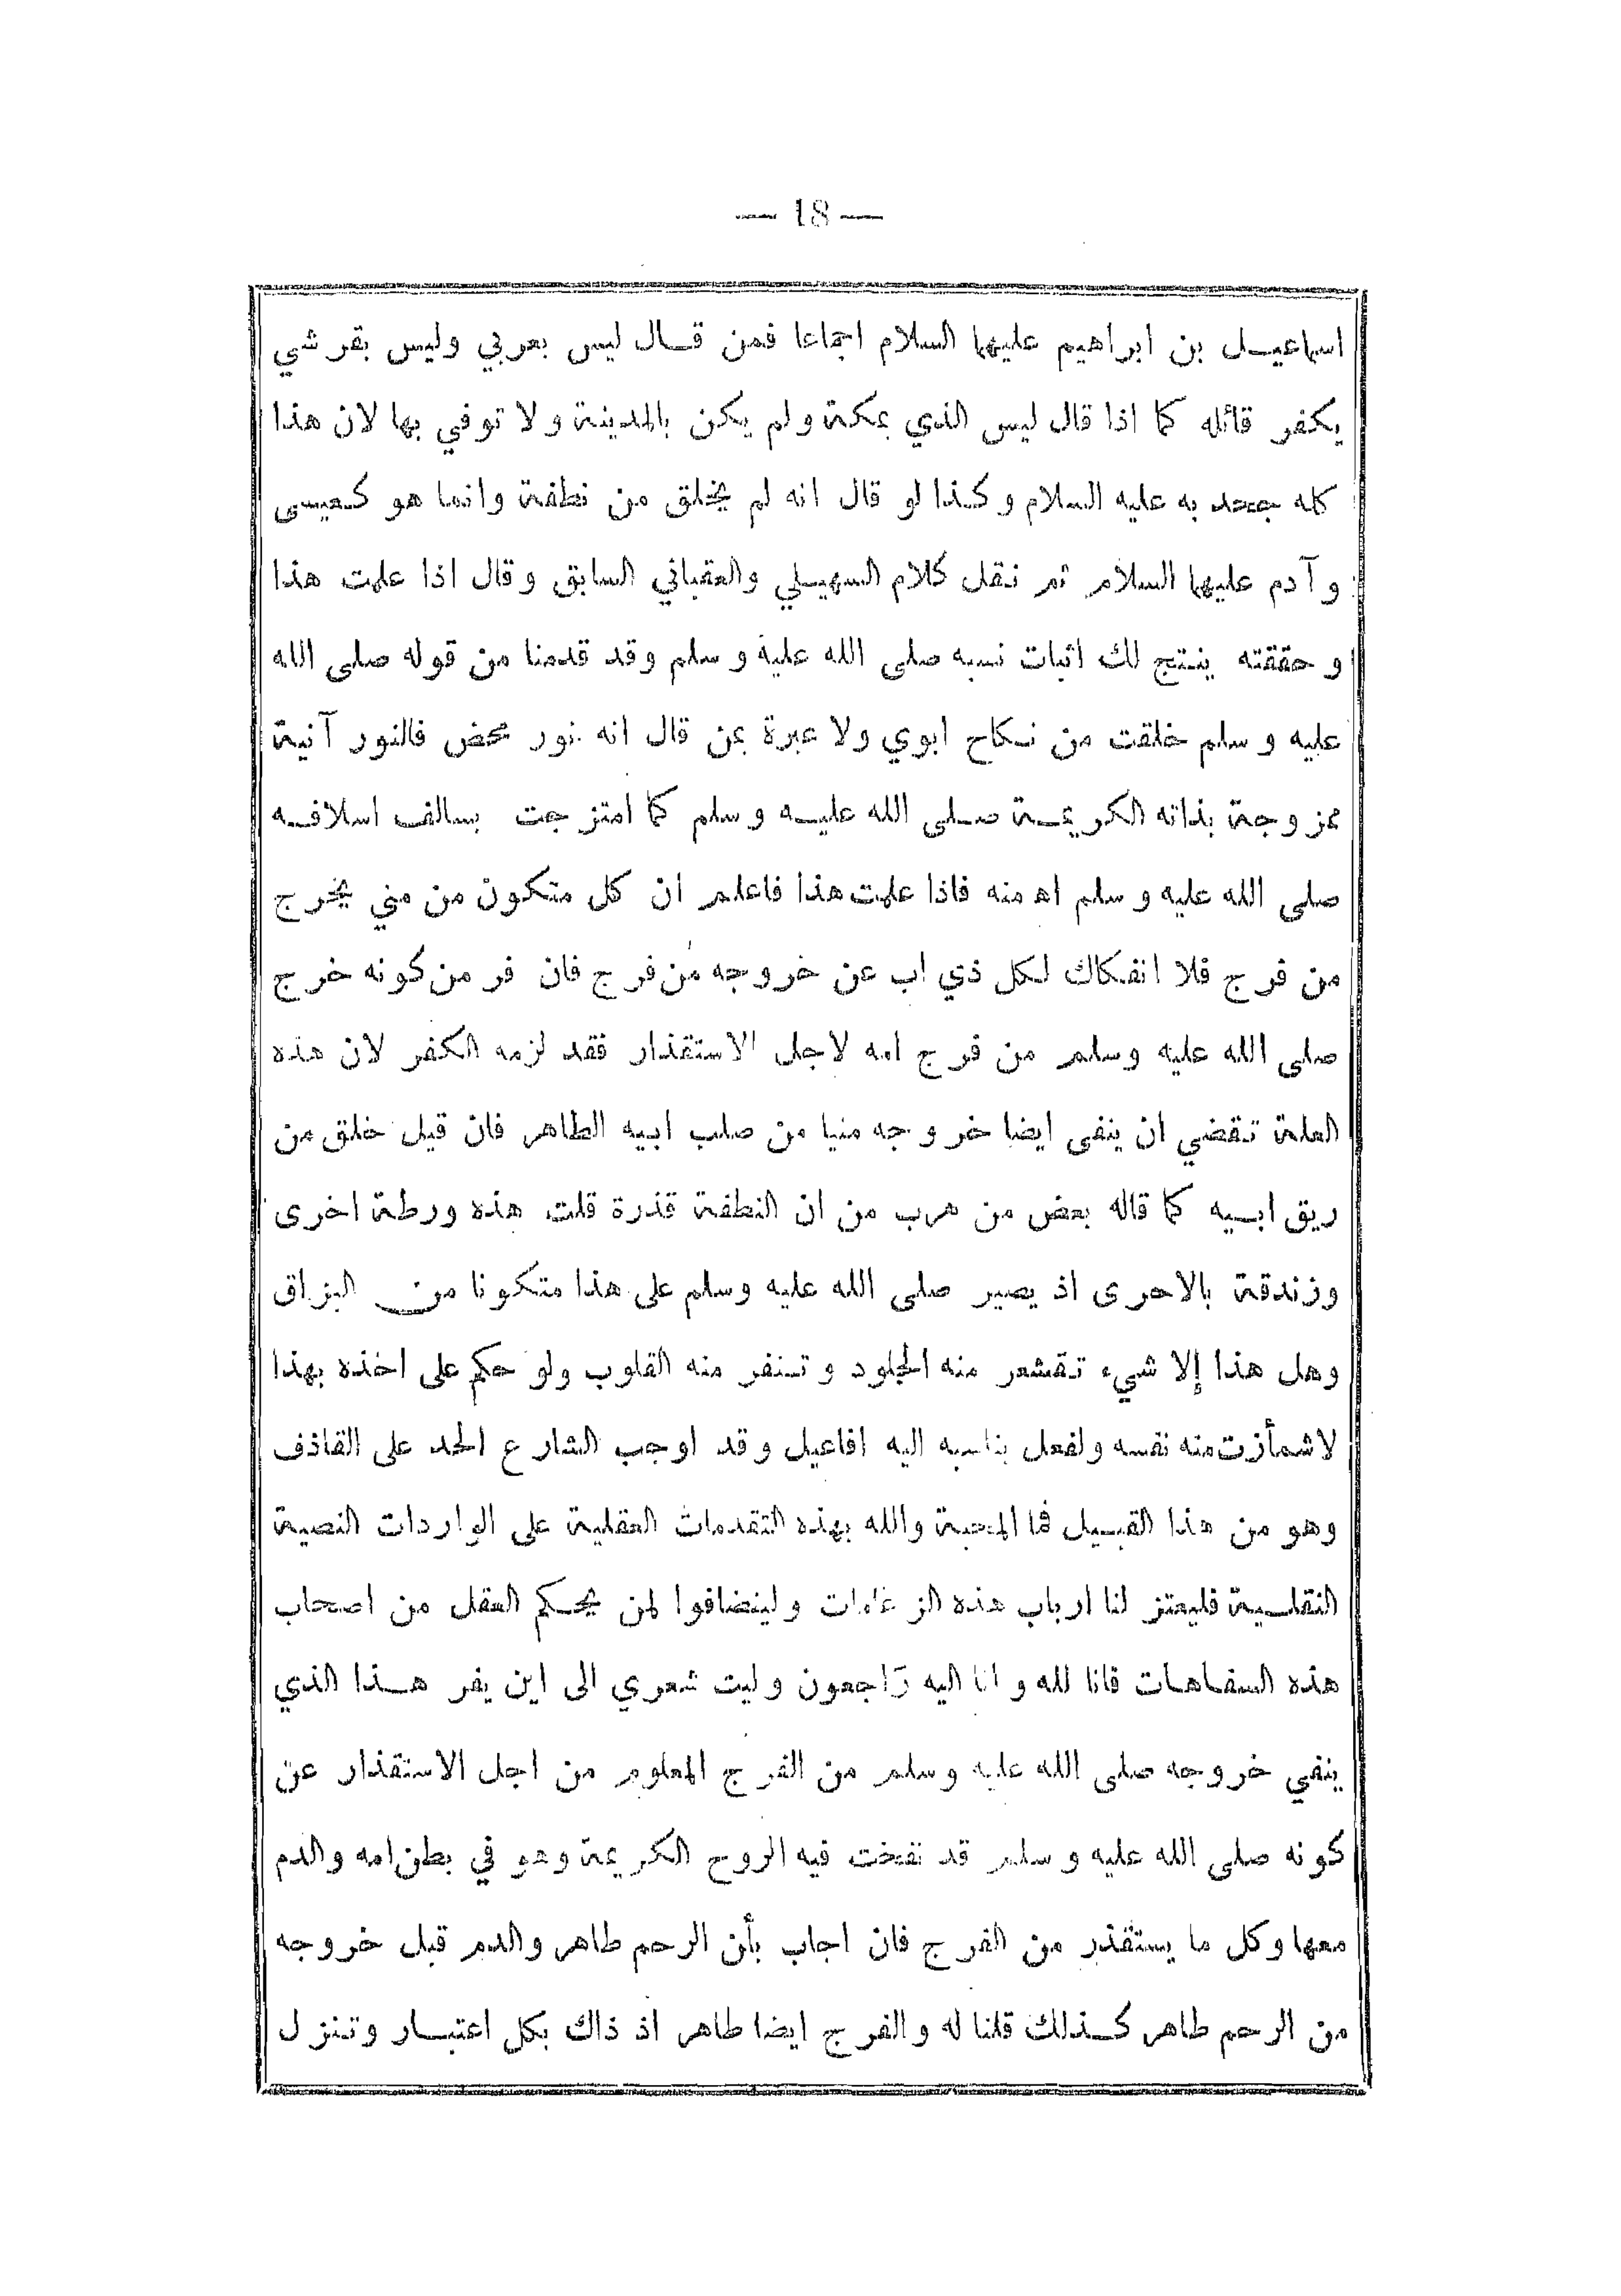 — 18 —
اسماعيل بن ابراهيم عليهما السلام اجماعا فمن قال ليس بعربي وليس بقرشي
يكفر قائله كما اذا قال ليس الذي بمكة ولم يكن بالمدينة ولا توفي بها لان هذا
كله جحد به عليه السلام وكذا لو قال انه لم يخلق من نطفة وانما هو كعيسى
وآدم عليهما السلام ثم نقل كلام السهيلي والعقباني السابق وقال اذا علمت هذا
وحققته ينتج لك اثبات نسبه صلى الله عليه وسلم وقد قدمنا من قوله صلى الله
عليه وسلم خلقت من نكاح ابوي ولا عبرة بمن قال انه نور محض فالنور آنية
ممزوجة بذاته الكريمة صلى الله عليه وسلم كما امتزجت بسالف اسلافه
صلى الله عليه وسلم اه منه فاذا علمت هذا فاعلم ان كل متكون من مني يخرج
من فرج فلا انفكاك لكل ذي اب عن خروجه من فرج فان فر من كونه خرج
صلى الله عليه وسلم من فرج امه لاجل الاستقذار فقد لزمه الكفر لان هذه
العلة تقضي ان ينفى ايضا خروجه منيا من صلب ابيه الطاهر فان قيل خلق من
ريق ابيه كما قاله بعض من هرب من ان النطفة قذرة قلت هذه ورطة اخرى
وزندقة بالاحرى اذ يصير صلى الله عليه وسلم على هذا متكونا من البزاق
وهل هذا إلا شيء تقشعر منه الجلود وتنفر منه القلوب ولو حكم على اخذه بهذا
لاشمأزت منه نفسه ولفعل بناسبه اليه افاعيل وقد اوجب الشارع الحد على القاذف
وهو من هذا القبيل فما المحبة والله بهذه التقدمات العقلية على الواردات النصية
النقلية فليعتز لنا ارباب هذه الزعامات ولينضافوا لمن يحكم العقل من اصحاب
هذه السفاهات فانا لله وانا اليه راجعون وليت شعري الى اين يفر هذا الذي
ينفي خروجه صلى الله عليه وسلم من الفرج المعلوم من اجل الاستقذار عن
كونه صلى الله عليه وسلم قد نفخت فيه الروح الكريمة وهو في بطن امه والدم
معها وكل ما يستقذر من الفرج فان اجاب بأن الرحم طاهر والدم قبل خروجه
من الرحم طاهر كذلك قلنا له والفرج ايضا طاهر اذ ذاك بكل اعتبار وتنزل